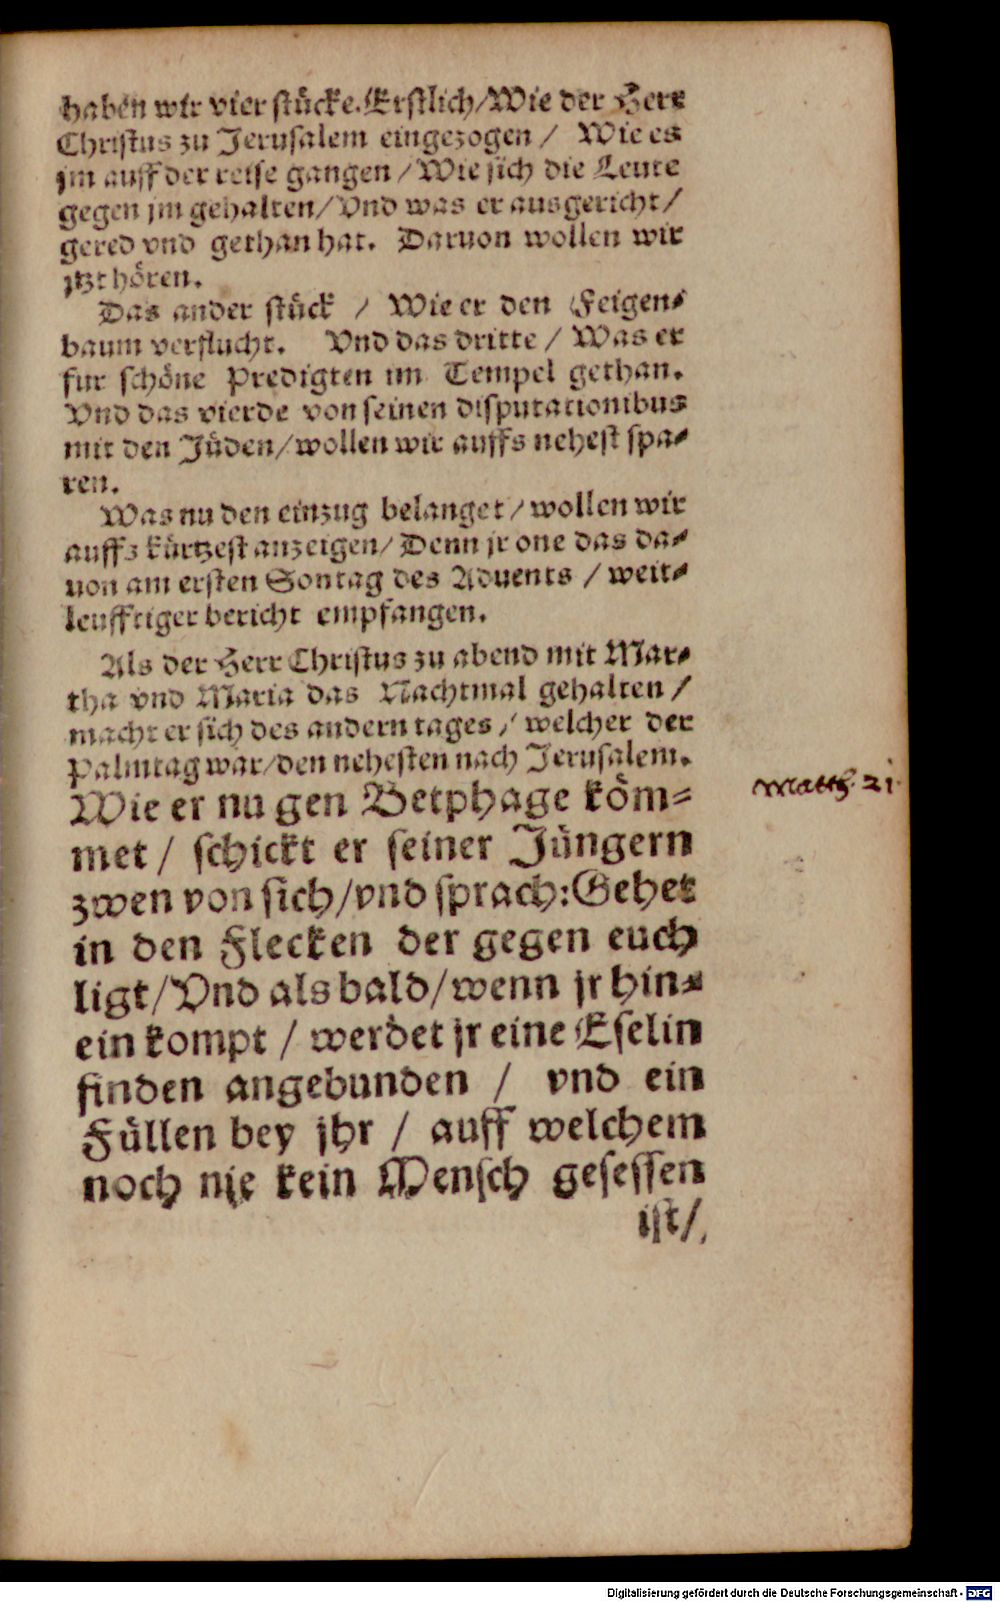 haben wir vier stücke. Erstlich/Wie der Herr
Christus zu Jerusalem eingezogen / Wie es
jm auff der reise gangen /Wie sich die Leute
gegen jm gehalten/Vnd was er ausgericht/
gered vnd gethan hat. Daruon wollen wir
jtzt hören.
Das ander stück / Wie er den Feigen⸗
baum verflucht. Vnd das dritte / Was er
fur schöne Predigten im Tempel gethan.
Vnd das vierde von seinen disputationibus
mit den Jüden/wollen wir auffs nehest spa⸗
ren.
Was nu den einzug belanget / wollen wir
auffs kürtzest anzeigen/ Denn jr one das da⸗
uon am ersten Sontag des Aduents / weit⸗
leufftiger bericht empfangen.
Als der Herr Christus zu abend mit Mar⸗
tha vnd Maria das Nachtmal gehalten /
macht er sich des andern tages / welcher der
Palmtag war/den nehesten nach Jerusalem.
Wie er nu gen Betphage köm⸗
met / schickt er seiner Jüngern
zwen von sich/vnd sprach:Gehet
in den Flecken der gegen euch
ligt/Vnd als bald/wenn jr hin⸗
ein kompt / werdet jr eine Eselin
finden angebunden / vnd ein
Füllen bey jhr / auff welchem
noch nie kein Mensch gesessen
ist/
Matth. 21.
Digitalisierung gefördert durch die Deutsche Forschungsgemeinschaft - DFG